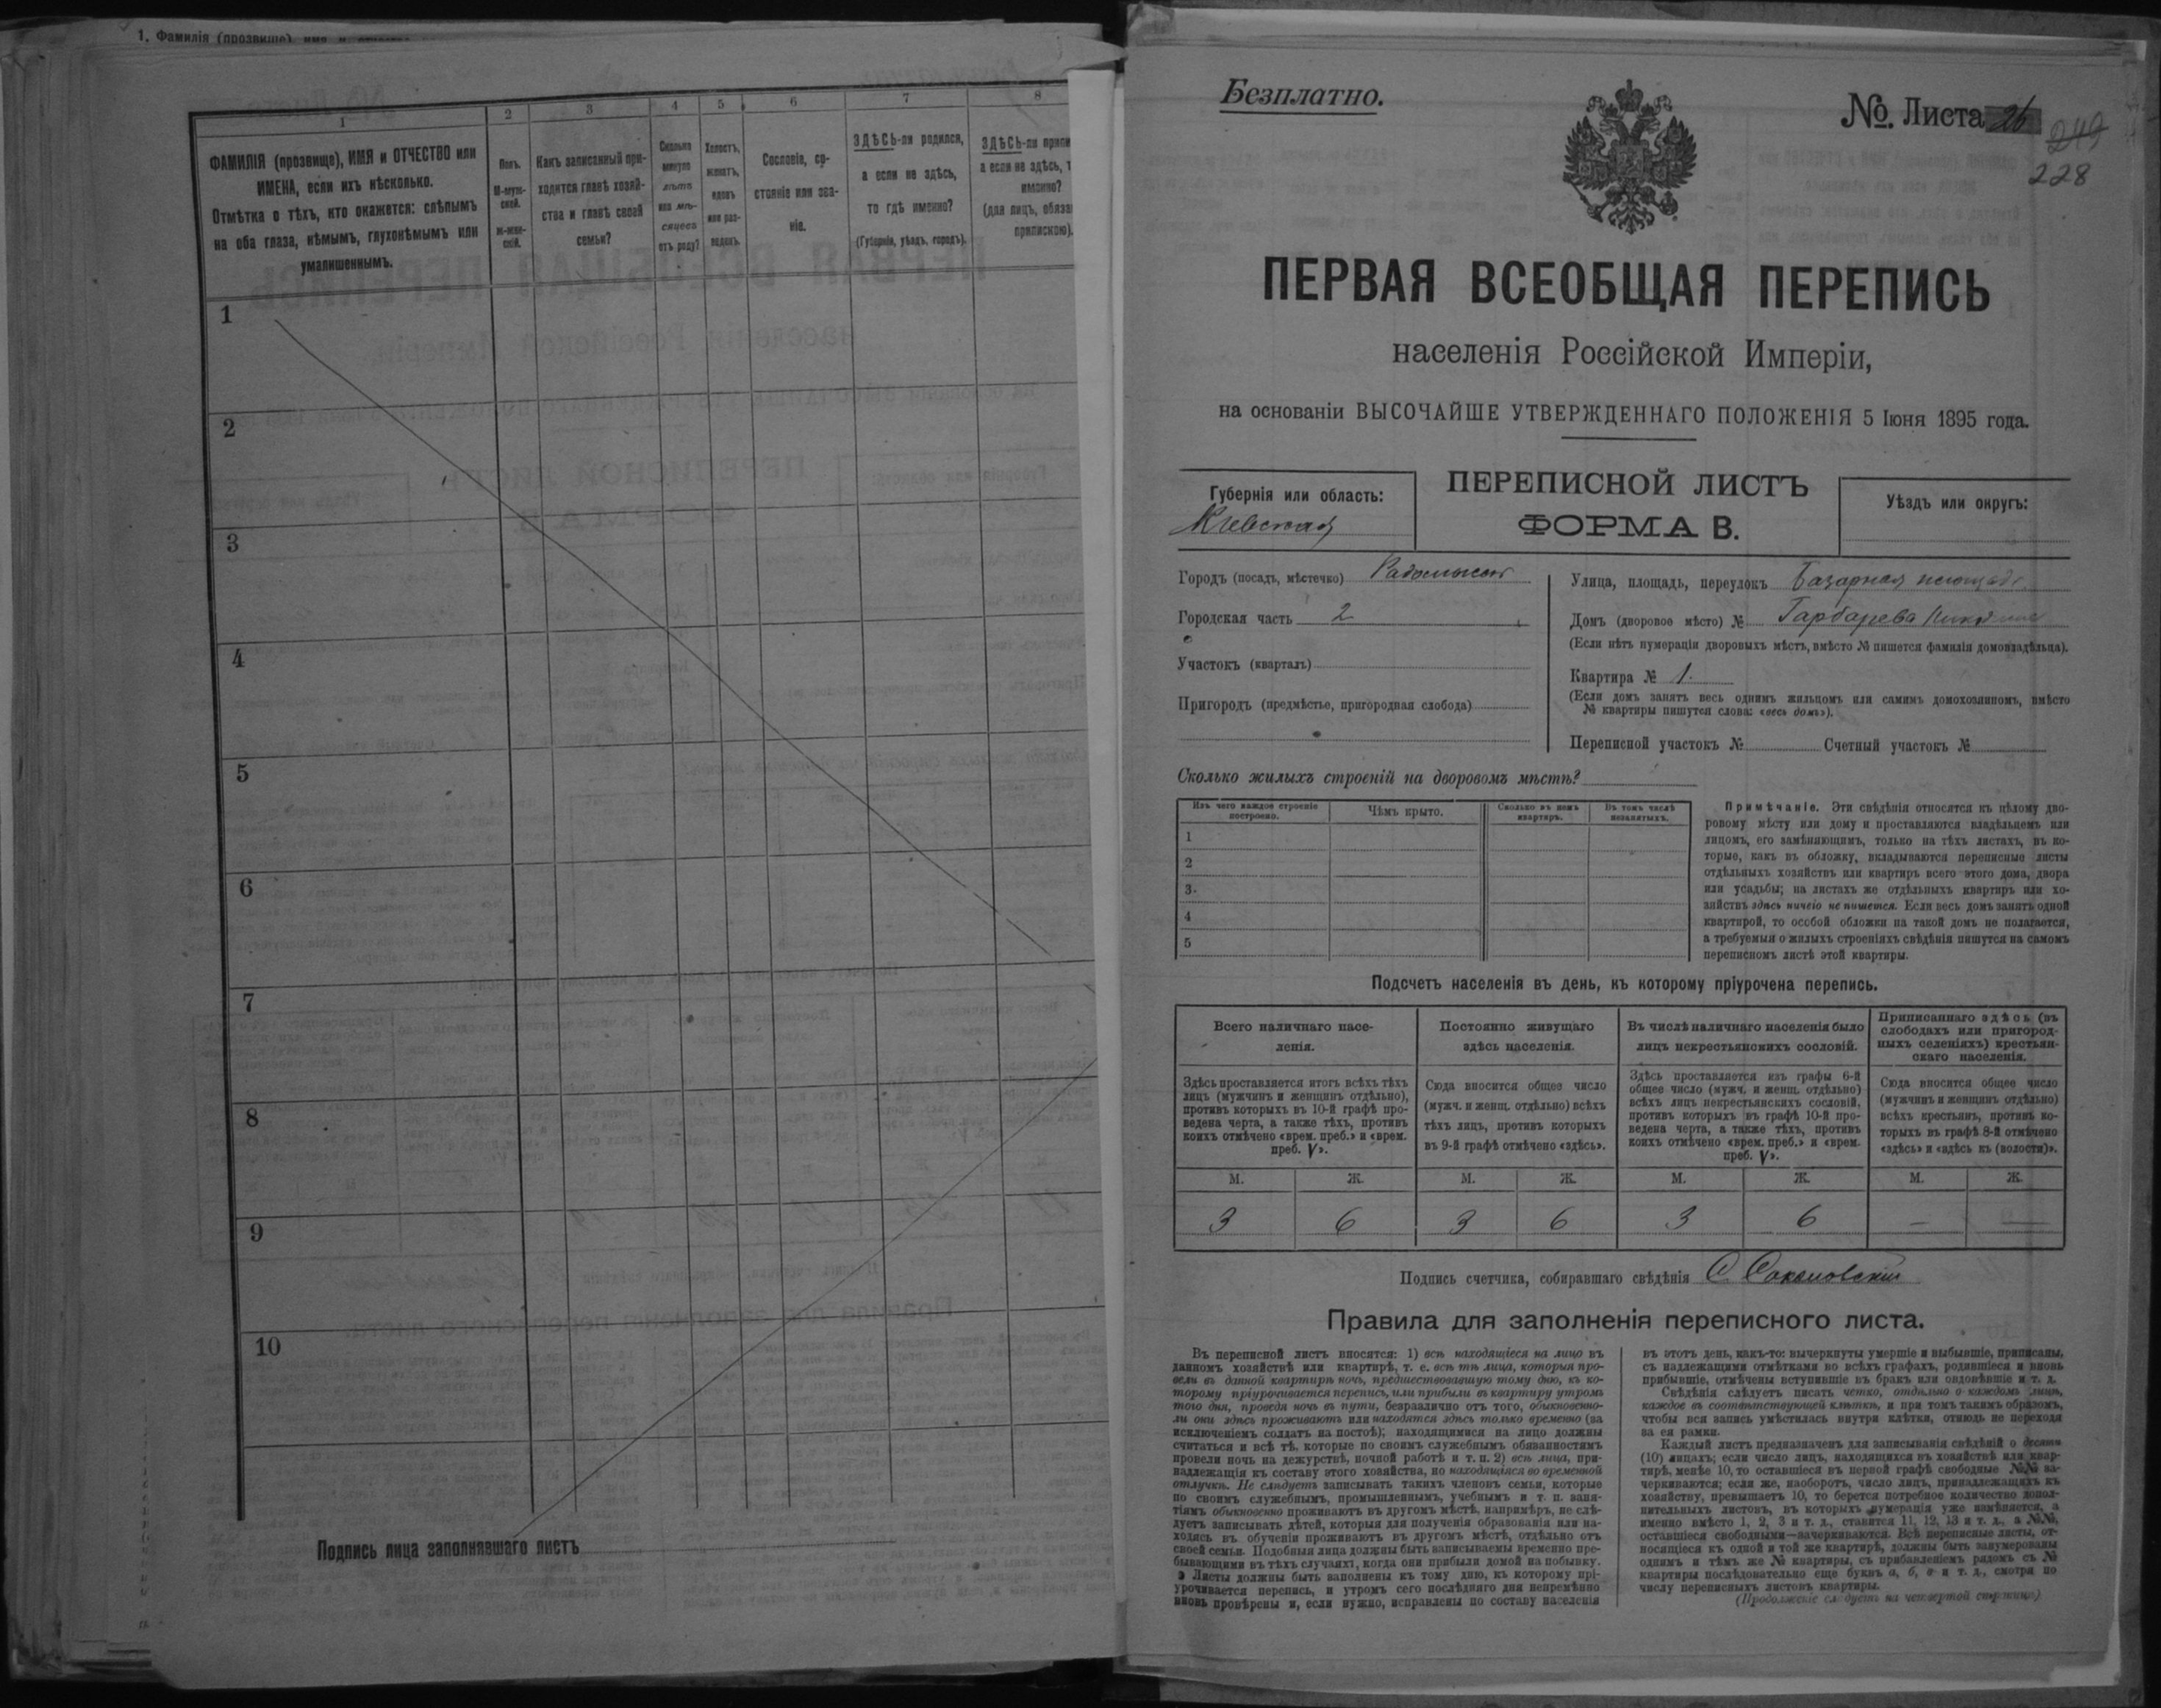 1. Фамилія (прозвище), имя и отчество
1
2
3
4
5
6
7
8
ФАМИЛІЯ (прозвище), ИМЯ и ОТЧЕСТВО или
ИМЕНА, если ихъ нѣсколько.
Отмѣтка о тѣхъ, кто окажется: слѣпымъ
на оба глаза, нѣмымъ, глухонѣмымъ или
умалишеннымъ.
Полъ.
М-муж-
ской.
Ж-жен-
скій.
Какъ записанный при-
ходится главѣ хозяй-
ства и главѣ своей
семьи?
Сколько
минуло
лѣтъ
или мѣ-
сяцевъ
отъ роду?
Холостъ,
женатъ,
вдовъ
или раз-
веденъ.
Сословіе, со-
стояніе или зва-
ніе.
ЗДѢСЬ-ли родился,
а если не здѣсь,
то гдѣ именно?
(Губернія, уѣздъ, городъ).
ЗДѢСЬ-ли припи
а если не здѣсь, т
именно?
(для лицъ, обяза
припискою).
1
2
3
4
5
6
7
8
9
10
Подпись лица заполнявшаго листъ
Безплатно.
№. Листа 26
249
228
ПЕРВАЯ ВСЕОБЩАЯ ПЕРЕПИСЬ
населенія Россійской Имперіи,
на основаніи ВЫСОЧАЙШЕ УТВЕРЖДЕННАГО ПОЛОЖЕНІЯ 5 Іюня 1895 года.
Губернія или область:
Кіевская
ПЕРЕПИСНОЙ ЛИСТЪ
ФОРМА В.
Уѣздъ или округъ:
Городъ (посадъ, мѣстечко) Радомысль
Городская часть 2
Участокъ (кварталъ)
Пригородъ (предмѣстье, пригородная слобода)
Улица, площадь, переулокъ Базарная площадь
Домъ (дворовое мѣсто) № Гарбарева
(Если нѣтъ нумераціи дворовыхъ мѣстъ, вмѣсто № пишется фамилія домовладѣльца).
Квартира № 1.
(Если домъ занятъ весь однимъ жильцомъ или самимъ домохозяиномъ, вмѣсто
№ квартиры пишутся слова: «весь домъ»).
Переписной участокъ № Счетный участокъ №
Сколько жилыхъ строеній на дворовомъ мѣстѣ?
Изъ чего каждое строеніе
построено.
Чѣмъ крыто.
Сколько въ немъ
квартиръ.
Въ томъ числѣ
незанятыхъ.
1
2
3
4
5
Примѣчаніе. Эти свѣдѣнія относятся къ цѣлому дво-
ровому мѣсту или дому и проставляются владѣльцемъ или
лицомъ, его замѣняющимъ, только на тѣхъ листахъ, въ ко-
торые, какъ въ обложку, вкладываются переписные листы
отдѣльныхъ хозяйствъ или квартиръ всего этого дома, двора
или усадьбы; на листахъ же отдѣльныхъ квартиръ или хо-
зяйствъ здѣсь ничего не пишется. Если весь домъ занятъ одной
квартирой, то особой обложки на такой домъ не полагается,
а требуемыя о жилыхъ строеніяхъ свѣдѣнія пишутся на самомъ
переписномъ листѣ этой квартиры.
Подсчетъ населенія въ день, къ которому пріурочена перепись.
Всего наличнаго насе-
ленія.
Постоянно живущаго
здѣсь населенія.
Въ числѣ наличнаго населенія было
лицъ некрестьянскихъ сословій.
Приписаннаго здѣсь (въ
слободахъ или пригород-
ныхъ селеніяхъ) крестьян-
скаго населенія.
Здѣсь проставляется итогъ всѣхъ тѣхъ
лицъ (мужчинъ и женщинъ отдѣльно),
противъ которыхъ въ 10-й графѣ про-
ведена черта, а также тѣхъ, противъ
коихъ отмѣчено «врем. преб.» и «врем.
преб. V».
Сюда вносится общее число
(мужч. и женщ. отдѣльно) всѣхъ
тѣхъ лицъ, противъ которыхъ
въ 9-й графѣ отмѣчено «здѣсь».
Здѣсь проставляется изъ графы 6-й
общее число (мужч. и женщ. отдѣльно)
всѣхъ лицъ некрестьянскихъ сословій,
противъ которыхъ въ графѣ 10-й про-
ведена черта, а также тѣхъ, противъ
коихъ отмѣчено «врем. преб.» и «врем.
преб. V».
Сюда вносится общее число
(мужчинъ и женщинъ отдѣльно)
всѣхъ крестьянъ, противъ ко-
торыхъ въ графѣ 8-й отмѣчено
«здѣсь» и «здѣсь къ (волости)».
М. Ж. М. Ж. М. Ж. М. Ж.
3 6 3 6 3 6 — —
Подпись счетчика, собиравшаго свѣдѣнія С. Сокологвскій
Правила для заполненія переписного листа.
Въ переписной листъ вносятся: 1) всѣ находящіеся на лицо въ
данномъ хозяйствѣ или квартирѣ, т. е. всѣ тѣ лица, которыя про-
вели въ данной квартирѣ ночь, предшествовавшую тому дню, къ ко-
торому пріурочивается перепись, или прибыли въ квартиру утромъ
того дня, проведя ночь въ пути, безразлично отъ того, обыкновенно-
ли они здѣсь проживаютъ или находятся здѣсь только временно (за
исключеніемъ солдатъ на постоѣ); находящимися на лицо должны
считаться и всѣ тѣ, которые по своимъ служебнымъ обязанностямъ
провели ночь на дежурствѣ, ночной работѣ и т. п. 2) всѣ лица, при-
надлежащія къ составу этого хозяйства, но находящіяся во временной
отлучкѣ. Не слѣдуетъ записывать такихъ членовъ семьи, которые
по своимъ служебнымъ, промышленнымъ, учебнымъ и т. п. заня-
тіямъ обыкновенно проживаютъ въ другомъ мѣстѣ, напримѣръ, не слѣ-
дуетъ записывать дѣтей, которыя для полученія образованія или на-
ходясь въ обученіи проживаютъ въ другомъ мѣстѣ, отдѣльно отъ
своей семьи. Подобныя лица должны быть записываемы временно пре-
бывающими въ тѣхъ случаяхъ, когда они прибыли домой на побывку.
Листы должны быть заполнены къ тому дню, къ которому прі-
урочивается перепись, и утромъ сего послѣдняго дня непремѣнно
вновь провѣрены и, если нужно, исправлены по составу населенія
въ этотъ день, какъ-то: вычеркнуты умершіе и выбывшіе, приписаны,
съ надлежащими отмѣтками во всѣхъ графахъ, родившіеся и вновь
прибывшіе, отмѣчены вступившіе въ бракъ или овдовѣвшіе и т. д.
Свѣдѣнія слѣдуетъ писать четко, отдѣльно о каждомъ лицѣ,
каждое въ соотвѣтствующей клѣткѣ, и при томъ такимъ образомъ,
чтобы вся запись умѣстилась внутри клѣтки, отнюдь не переходя
за ея рамки.
Каждый листъ предназначенъ для записыванія свѣдѣній о десяти
(10) лицахъ; если число лицъ, находящихся въ хозяйствѣ или квар-
тирѣ, менѣе 10, то оставшіеся въ первой графѣ свободные №№ за-
черкиваются; если же, наоборотъ, число лицъ, принадлежащихъ къ
хозяйству, превышаетъ 10, то берется потребное количество допол-
нительныхъ листовъ, въ которыхъ нумерація уже измѣняется, а
именно вмѣсто 1, 2, 3 и т. д., ставится 11, 12, 13 и т. д., а №№,
оставшіеся свободными—зачеркиваются. Всѣ переписные листы, от-
носящіеся къ одной и той же квартирѣ, должны быть занумерованы
однимъ и тѣмъ же № квартиры, съ прибавленіемъ рядомъ съ №
квартиры послѣдовательно еще буквъ а, б, в и т. д., смотря по
числу переписныхъ листовъ квартиры.
(Продолженіе слѣдуетъ на четвертой страницѣ)